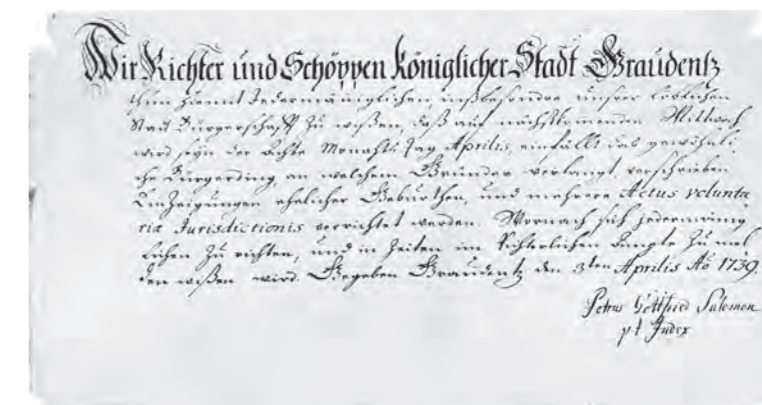 Wir Richter und Schöppen Königlicher Stadt Graudentz
thun hiemit Jedermänniglichen, insbesondre unsrer Löblichen
Stadt Bürgerschafft zu wißen, daß auf nächstkomenden Mittwoch
wird seyn der achte Monahts Tag Aprilis, einfällt das gewöhnli
che Bürgerding, an welchem Gründer verlangt, verschrieben
Zeigungen ehelicher Gebuhrten, und mehrere Actus volunta
riæ Jurisdictionis verrichtet werden. Wornach sich jedermännig
lichen zu richten, und in Zeiten im Richterlichen Ampte zu mel
den wißen wird. Gegeben Graudentz den 3ten Aprilis Ao 1739.
Petrus Gottfried Salomon
p t Judex